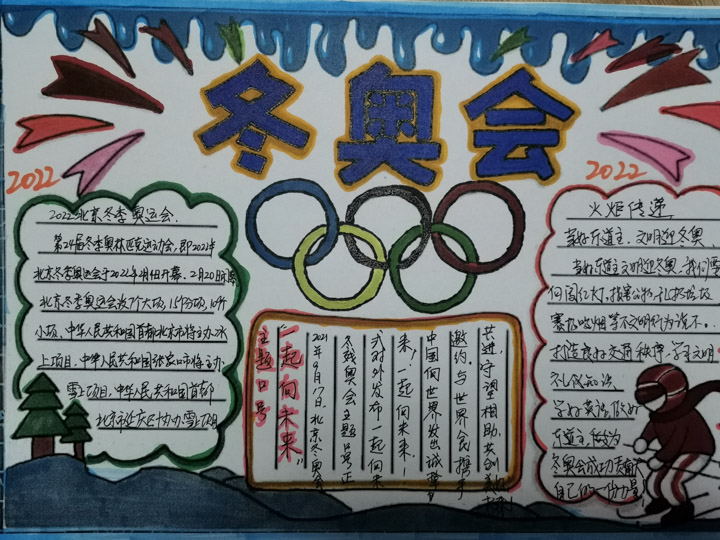 冬奥会
2022
2022
2022北京冬季奥运会
第24届冬季奥林匹克运动会,即2022年
北京冬季奥运会于2022年2月4日开幕,2月20日闭幕
北京冬季奥运会设7个大项,15个分项,109个
小项,中华人民共和国首都北京市将主办冰
上项目,中华人民共和国张家口市将主办
雪上项目,中华人民共和国首都
北京市延庆区协办雪上项目
主题口号
“一起向未来”
2021年9月17日,北京冬奥会
冬残奥会主题口号正
式对外发布一起向未
来!一起向未来!
中国向世界发出诚挚
邀约,与世界民携手
共进,守望相助,共创美好未来!
火炬传递
当好东道主,文明迎冬奥
当好东道主文明迎冬奥,我们要
向闯红灯,损害公物,乱扔垃圾
赛场吸烟等不文明行为说不。
打造良好交通秩序,学习文明
礼仪知识
学好英语,做好
东道主,
冬奥会成功贡献
自己的一份力量